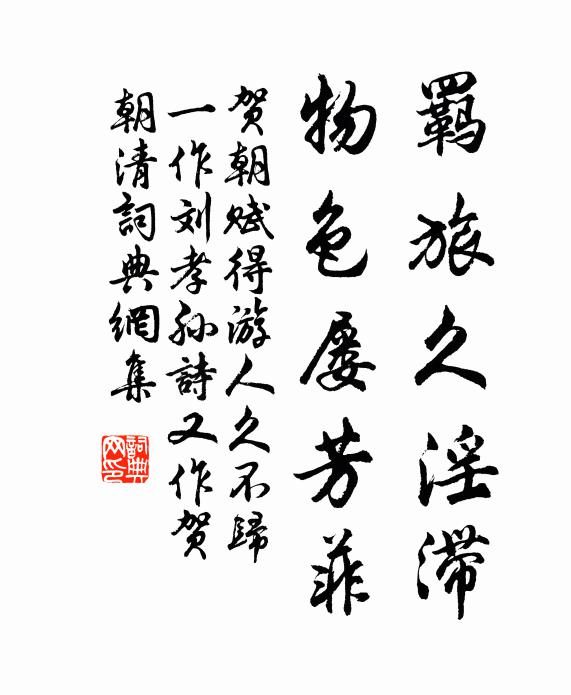 羈旅久淫滯
物色屡芳菲
贺朝赋得游人久不歸
一作刘孝孙詩又作贺
朝清詞典網集
詞典網印